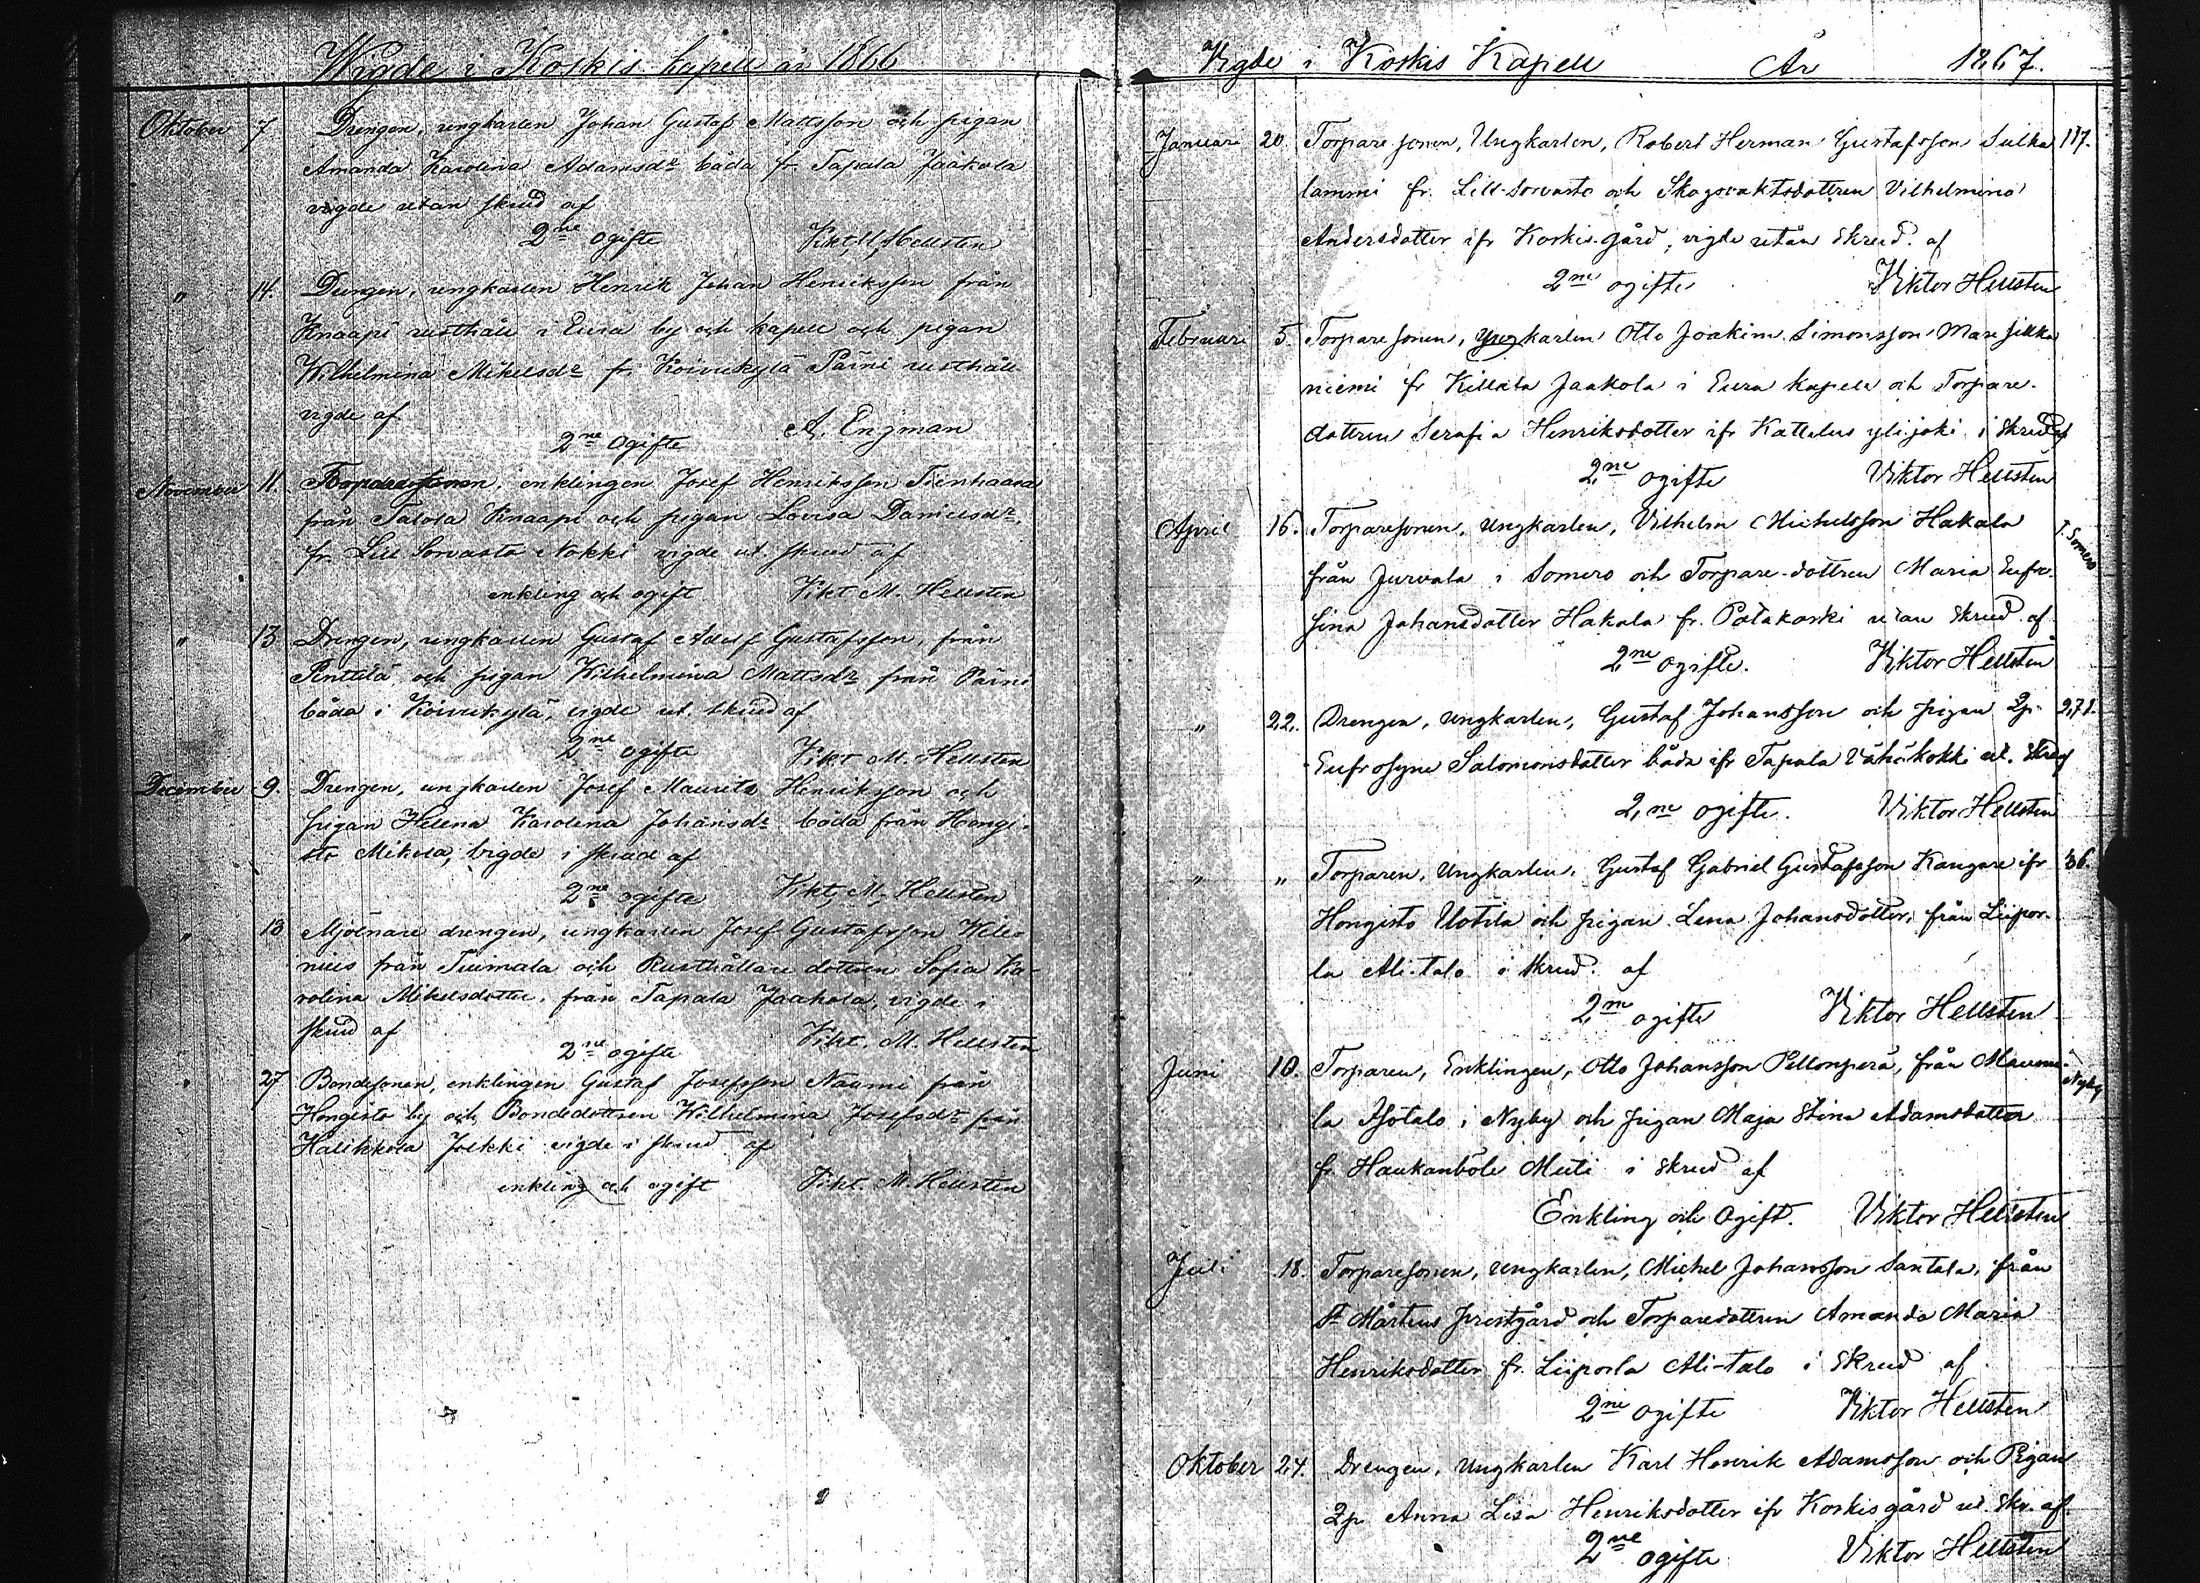 Wigde i Koskis kapell år 1866
Oktober 7 Drengen, ungkarlen Johan Gustaf Mattsson och pigan
Amanda Karolina Adamsdr båda fr. Tapala Jaakola
vigde utan skrud af
2ne ogifte Vikt. M. Hellsten
" 14. Drengen, ungkarlen Henrik Johan Henriksson från
Knaapi rusthåll i Eura by och kapell och pigan
Wilhelmina Mikelsdr fr. Koivukylä Päini rusthåll
vigde af
2ne Ogifte A. Engman
November 11. Torparesonen, enklingen Josef Henriksson Tienhaara
från Talola Knaapi och pigan Lovisa Danielsdr.
fr. Lill Sorvasto Nokki vigde ut. skrud af
enkling och ogift Vikt M. Hellsten
" 13 Drengen, ungkarlen Gustaf Adolf Gustafsson, från
Penttilä och pigan Wilhelmina Mattsdr från Päini
båda i Koivukylä, vigde ut. skrud af
2ne ogifte Vikt M. Hellsten
December 9. Drengen, ungkarlen Josef Maurits Henriksson och
pigan Helena Karolina Johansdr båda från Hongi-
sto Mikola, vigde i skrud af
2ne ogifte Vikt. M. Hellsten
" 13 Mjölnare drengen, ungkarlen Josef Gustafsson
nius från Tuimala och Rusthållare dottren Sofia Ka-
rolina Mikelsdotter, från Tapala Jaakola, vigde i
skrud af
2ne ogifte Vikt. M. Hellsten
" 27 Bondesonen, enklingen Gustaf Josefsson Naumi från
Hongisto by och Bondedottren Wilhelmina Josefsdr från
Halikkola Jöekki vigde i skrud af
enkling och ogift Vikt. M. Hellsten
Vigde i Koskis Kapell År 1867.
Januari 20. Torpare sonen, Ungkarlen, Robert Herman Gustafsson Sulka 117.
lammi fr. Lill-Sorvasto och Skogsvaktsdottren Vilhelmina
Andersdotter ifr Koskis gård, vigde utan skrud. af
2ne ogifte Viktor Hellsten
Februari 5. Torpare sonen, Ungkarlen Otto Joakim Simonsson Mansikka
niemi fr Killala Jaakola i Eura kapell och Torpare-
dottren Serafia Henriksdotter ifr Kattelus ylijoki i skrud af
2ne ogifte Viktor Hellsten
April 16. Torparesonen, Ungkarlen, Vilhelm Michelsson Hakala t. Somero
från Jurvala i Somero och Torpare-dottren Maria Eufro-
sina Johansdotter Hakala fr. Patakoski utan skrud. af
2ne ogifte. Viktor Hellsten
" 22. Drengen, Ungkarlen, Gustaf Johansson och pigan Qp. 271.
Eufrosyne Salomonsdotter båda ifr Tapala Vähäkokki ut. skr af
2,ne ogifte. Viktor Hellsten
" " Torparen, Ungkarlen, Gustaf Gabriel Gustafsson Kangare ifr 36.
Hongisto Uotila och pigan Lena Johansdotter, från Liipo-
la Ali-talo i skrud. af
2ne ogifte Viktor Hellsten
Juni 10. Torparen, Enklingen, Otto Johansson Pellonperä, från Maume- Nyby
la Isotalo i Nyby och pigan Maja Stina Adamsdotter
fr. Haukanböle Muti i skrud af
Enkling och Ogift. Viktor Hellsten
Juli 18. Torparesonen, Ungkarlen, Michel Johansson Santala, från
St Mårtens prestgård och Torparedottren Amanda Maria
Henriksdotter fr. Liipola Ali-talo i skrud af
2ne ogifte Viktor Hellsten
Oktober 24. Drengen, Ungkarlen Karl Henrik Adamsson och Pigan
Qp Anna Lisa Henriksdotter ifr Koskisgård ut. skr. af
2ne ogifte Viktor Hellsten